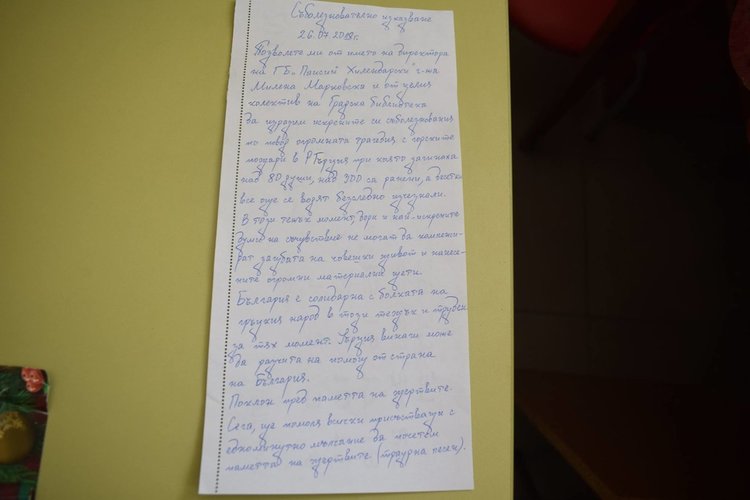 Съболезнователно изказване
26.07.2018г.
Позволете ми от името на директора
на ГБ „Паисий Хилендарски" г-жа
Милена Марковска и от целия
колектив на Градска библиотека
да изразим искрените си съболезнования
по повод огромната трагедия с горските
пожари в Р Гърция при която загинаха
над 80 души, над 300 са ранени, а десетки
все още се водят безследно изчезнали.
В този тежък момент, дори и най-искрените
думи на съчувствие не могат да компенси-
рат загубата на човешки живот и нанесе-
ните огромни материални щети.
България е солидарна с болката на
гръцкия народ в този тежък и труден
за тях момент. Гърция винаги може
да разчита на помощ от страна
на България.
Поклон пред паметта на жертвите.
Сега, ще помоля всички присъстващи с
едноминутно мълчание да почетем
паметта на жертвите (траурна песен).